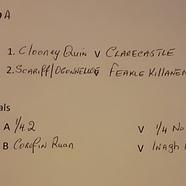 A
1. Clooney Quin V CLARECASTLE
2. SCARIFF/OGONNELLOE FEAKLE KILLANEN
als
A 1/4 2 V 1/4 No
B COROFIN RUAN V INAGH